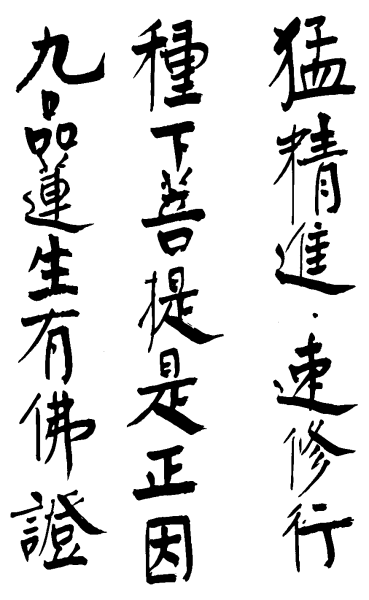 猛精進·速修行
種下菩提是正因
九品蓮生有佛證